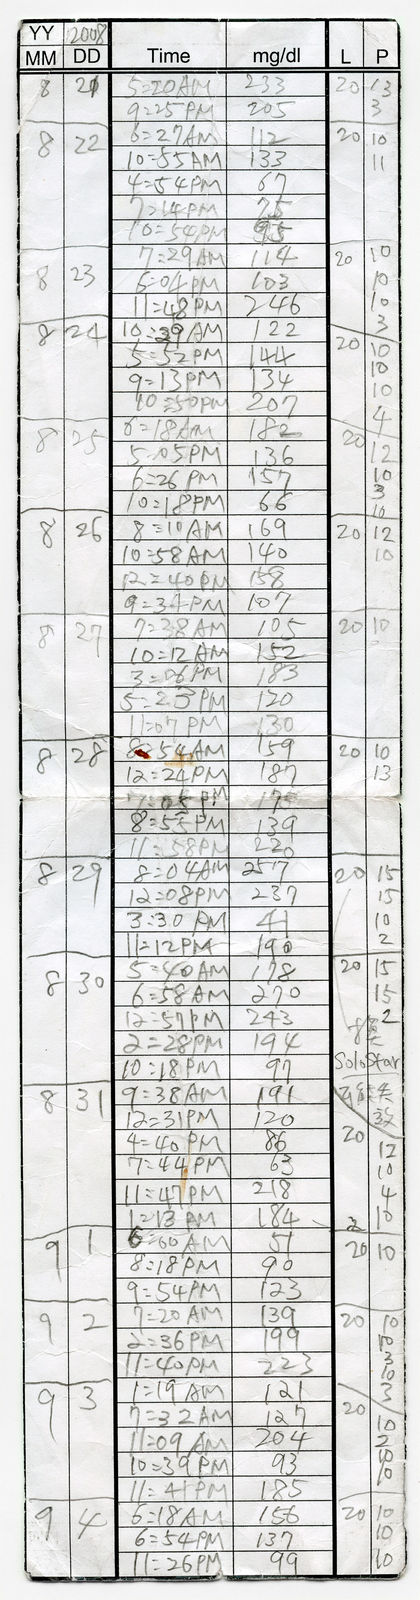 YY 2008
MM DD Time mg/dl L P
8 21 5:20AM 233 20 13
9:25PM 205 3
8 22 6:27AM 112 20 10
10:85AM 133 11
4:54PM 67
7:14PM 75
10:54PM 95
8 23 7:29AM 114 20 10
6:04PM 103 10
11:48PM 246 10
3
8 24 10:39AM 122 20 10
5:52PM 144 10
9:13PM 134 10
10:50PM 207 4
8 25 6:18AM 182 20 12
5:05PM 136 10
6:26PM 157 3
10:18PM 66 10
8 26 8:10AM 169 20 12
10:58AM 140 10
12:40PM 158
9:37PM 107
8 27 7:38AM 105 20 10
10:12AM 152
3:06PM 183
5:23PM 120
11:07PM 130
8 28 8:54AM 159 20 10
12:24PM 187 13
8:55PM 139
11:58PM 220
8 29 8:04AM 257 20 15
12:08PM 237 15
3:30PM 41 10
11:12PM 190 2
8 30 5:40AM 178 20 15
6:58AM 270 15
12:57PM 243 2
2:28PM 194
10:18PM 97 SoloStar
8 31 9:38AM 191 失
12:31PM 120 20 效
4:40PM 86 12
7:44PM 63 10
11:47PM 218 4
1:13AM 184 2 10
9 1 6:00AM 51 20 10
8:18PM 90
9:54PM 123
9 2 7:20AM 139 20 10
2:36PM 199
11:40PM 223 3
9 3 1:19AM 121 20 3
7:32AM 127 10
11:09AM 204 2
10:39PM 93
11:41PM 185 10
9 4 6:18AM 156 20 10
6:54PM 137 10
11:26PM 99 10